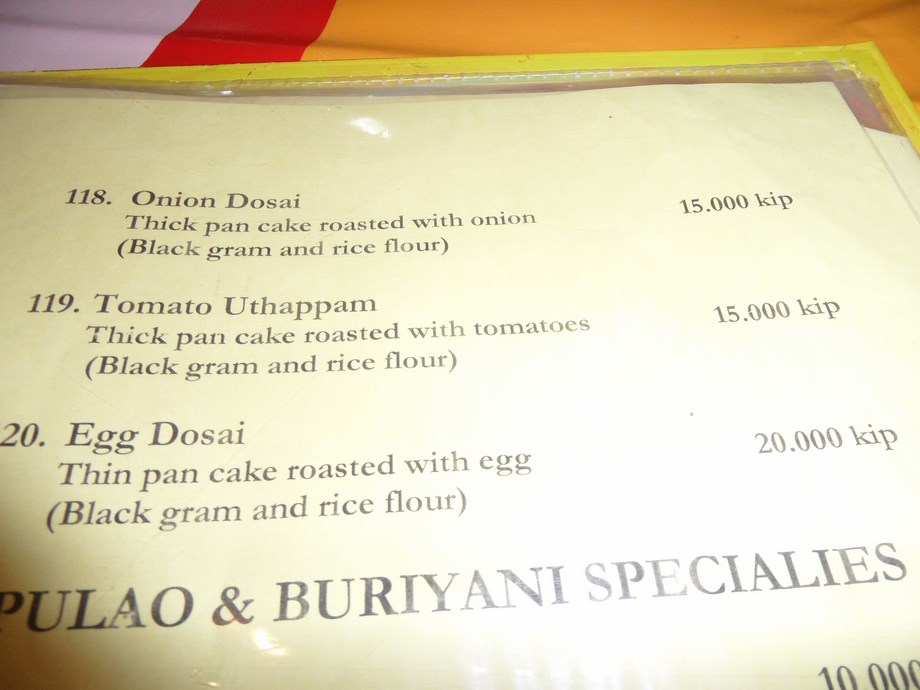 118. Onion Dosai 15.000 kip
Thick pan cake roasted with onion
(Black gram and rice flour)
119. Tomato Uthappam 15.000 kip
Thick pan cake roasted with tomatoes
(Black gram and rice flour)
20. Egg Dosai 20.000 kip
Thin pan cake roasted with egg
(Black gram and rice flour)
PULAO & BURIYANI SPECIALIES
10.000